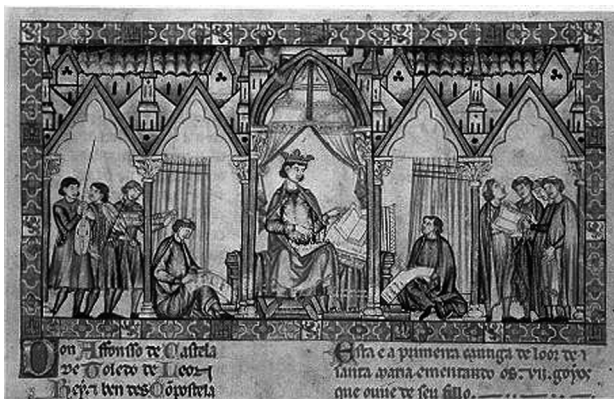 Don Affonsso de Castela
de Toledo de Leon
Rey e ben des Cõpostela
Esta e a primeira cantiga de loor de
santa maria ementando os .vii. goyos
que ouue de seu fillo.